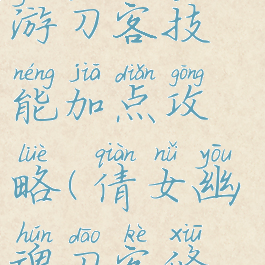 游刀客技
néng jiā diǎn gōng
能加点攻
lüè qiàn nǚ yōu
略(倩女幽
hún dāo kè xiū
魂刀客修